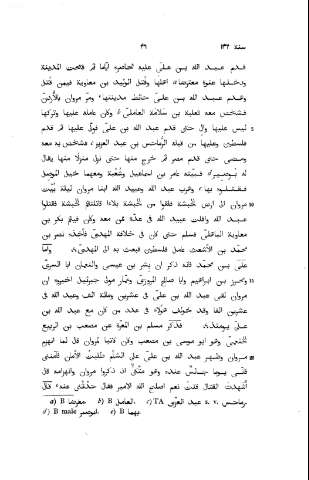 سنة ١٣٢ ٤٦
قدم عبد الله بن على عليه فحاصره ايّاما ثم فتحت المدينة
ودخلها عنوة معترضا اهلها وقتل الوليد بن معاوية فيمن قتل
وهدم عبد الله بن على حائط مدينتها ومرّ مروان بالأردن
فشخص معه ثعلبة بن سلامة العاملى وكان عامله عليها وتركها
ليس عليها وال حتى قدم عبد الله بن على فولّى عليها ثم قدم
فلسطين وعليها من قبله الرماحس بن عبد العزيز فشخص به معه
ومضى حتى قدم مصر ثم خرج منها حتى نزل منزلا منها يقال
له بوصير فبيّته عامر بن اسماعيل وشعبة ومعهما خيل الموصل
فقتلوه بها وهرب عبد الله وعبيد الله ابنا مروان ليلة بيّت
مروان الى ارض الحبشة فلقوا من الحبشة بلاء قاتلتهم الحبشة فقتلوا
عبيد الله وافلت عبد الله فى عدّة ممن معه وكان فيهم بكر بن
معاوية الباهلى فسلم حتى كان فى خلافة المهدى فأخذه نصر بن
محمد بن الأشعث عامل فلسطين فبعث به الى المهدى واما
على بن محمد فانه ذكر ان بشر بن عيسى والنعمان ابا السرى
ومحرز بن ابراهيم وابا صالح المروزى وعمار مولى جبرئيل اخبروه ان
مروان لقى عبد الله بن على فى عشرين ومائة الف وعبد الله فى
عشرين الفا وقد خولف هؤلاء فى عدد من كان مع عبد الله بن
على يومئذ فذكر مسلم بن المغيرة عن مصعب بن الربيع
الخثعمى وهو ابو موسى بن مصعب وكان كاتبا لمروان قال لما انهزم
مروان وظهر عبد الله بن على على الشأم طلبت الأمان فآمننى
فانى يوما جالس عنده وهو متّكئ اذ ذكروا مروان وانهزامه قال
أشهدت القتال قلت نعم اصلح الله الامير فقال حدّثنى عنه قال
a) B معرضا. b) B العامل. c) TA s. v. رماحس, عبد العزّى.
d) B male ابوصير. e) B بهما.